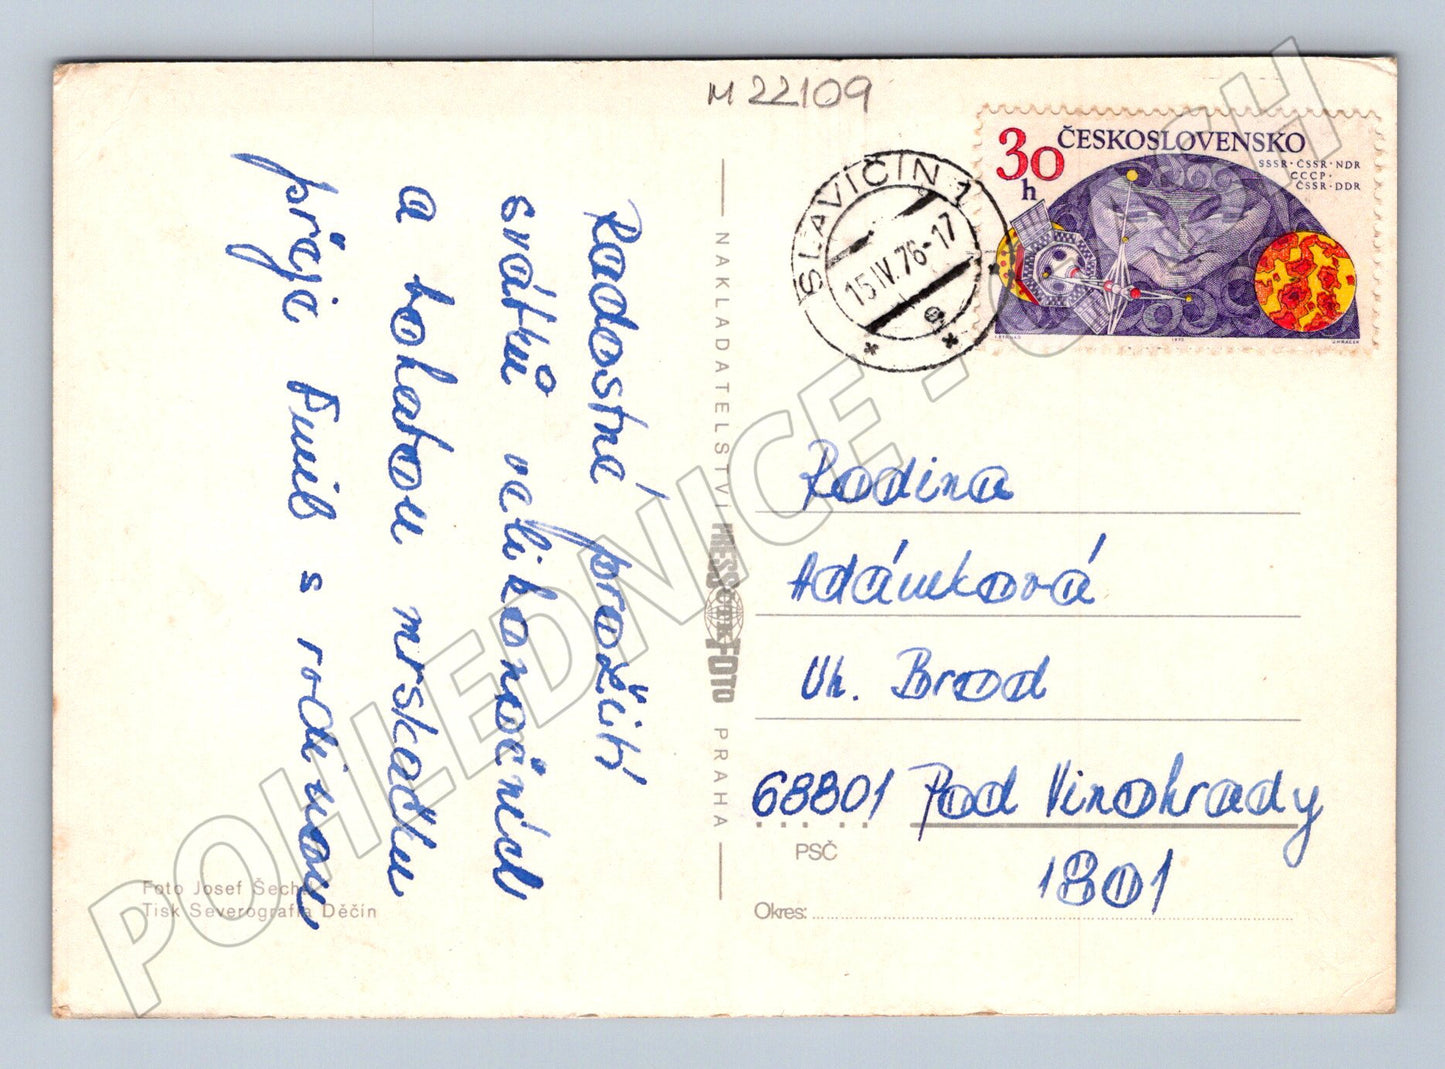 M 22109
30
h
ČESKOSLOVENSKO
SSSR · ČSSR · NDR
CCCP ·
ČSSR · DDR
SLAVIČÍN 1
15.IV.76-17
a
Radostné prožití
svátků velikonočních
a bohatou mrskačku
přeje Emil s rodinou
Foto Josef Sech
Tisk Severografia Děčín
NAKLADATELSTVÍ PRESSFOTO PRAHA
ČTK
Rodina
Adámková
Uh. Brod
68801 Pod Vinohrady
1801
PSČ
Okres:
1975
J. HRÁČEK
POHLEDNICE - CECH